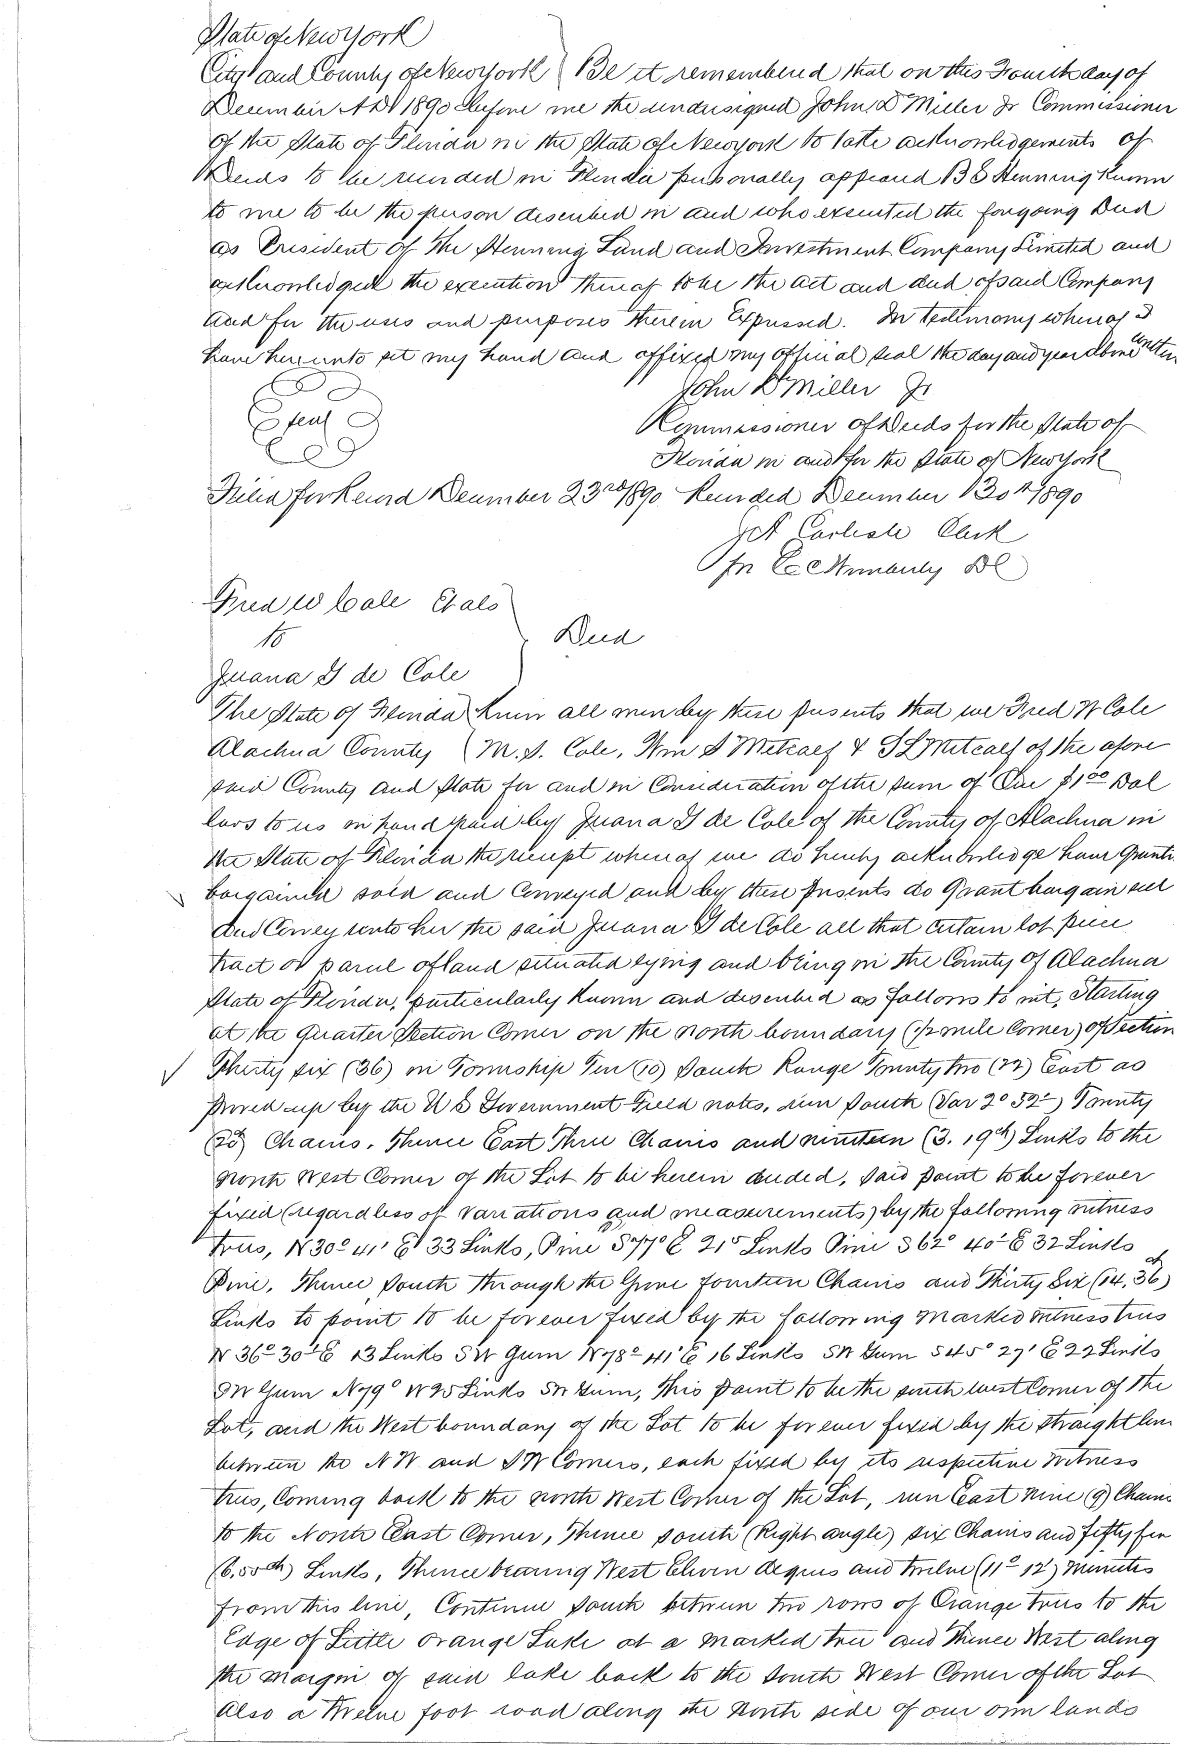 State of New York
City and County of New York } Be it remembered that on this Fourth day of
December AD 1890 before me the undersigned John D Miller Jr Commissioner
of the State of Florida in the State of New York to take acknowledgements of
Deeds to be recorded in Florida personally appeared B S Henning Known
to me to be the person described in and who executed the foregoing Deed
as President of The Henning Land and Investment Company Limited and
acknowledged the execution thereof to be the act and deed of said Company
and for the uses and purposes therein Expressed. In testimony whereof I
have hereunto set my hand and affixed my official seal the day and year above written
John D Miller Jr
Seal
Commissioner of Deeds for the State of
Florida in and for the State of New York
Filed for Record December 23rd 1890 Recorded December 30th 1890
J A Carlisle Clerk
pr DC
Fred W Cole Et als
to } Deed
Juana G de Cole
The State of Florida } Know all men by these presents that we Fred W Cole
Alachua County } M. S. Cole, Wm S Metcalf & S L Metcalf of the afore
said County and State for and in Consideration of the sum of One $1 00 Dol
lars to us in hand paid by Juana G de Cole of the County of Alachua in
the State of Florida the receipt whereof we do hereby acknowledge have Grante
bargained sold and Conveyed and by these presents do Grant bargain sell
and Convey unto her the said Juana G de Cole all that certain lot piece
tract or parcel of land situated lying and being in the County of Alachua
State of Florida, particularly Known and described as follows to wit, Starting
at the Quarter Section Corner on the north boundary (1/2 mile Corner) of Section
Thirty six (36) in Township Ten (10) South Range Twenty two (22) East as
proved up by the U S Government Field notes, run South (Var 2° 52') Twenty
(20) Chains. Thence East Three Chains and nineteen (3. 19ch) Links to the
North West Corner of the Lot to be herein deeded, said point to be forever
fixed (regardless of variations and measurements) by the following witness
trees, N 30° 41' E 33 Links, Pine S 77° E 21 Links Pine S 62° 40' E 32 Links
Pine. Thence South through the Grove fourteen Chains and Thirty Six (14, 36 ch)
Links to point to be forever fixed by the following Marked Witness trees
N 36° 30' E 13 Links SW Gum N 78° 41' E 16 Links SW Gum S 45° 27' E 22 Links
SW Gum N 79° W 25 Links SW Gum, This point to be the south west Corner of the
Lot, and the West boundary of the Lot to be forever fixed by the straight line
between the N W and S W Corners, each fixed by its respective Witness
trees, Coming back to the North West Corner of the Lot, run East nine (9) Chains
to the North East Corner, Thence South (Right angle) six Chains and fifty five
(6.55ch) Links, Thence bearing West Eleven degrees and twelve (11° 12') minutes
from this line, Continue South between two rows of Orange trees to the
Edge of Little Orange Lake at a marked tree and Thence West along
the margin of said lake back to the South West Corner of the Lot
Also a Twelve foot road along the North side of our own lands